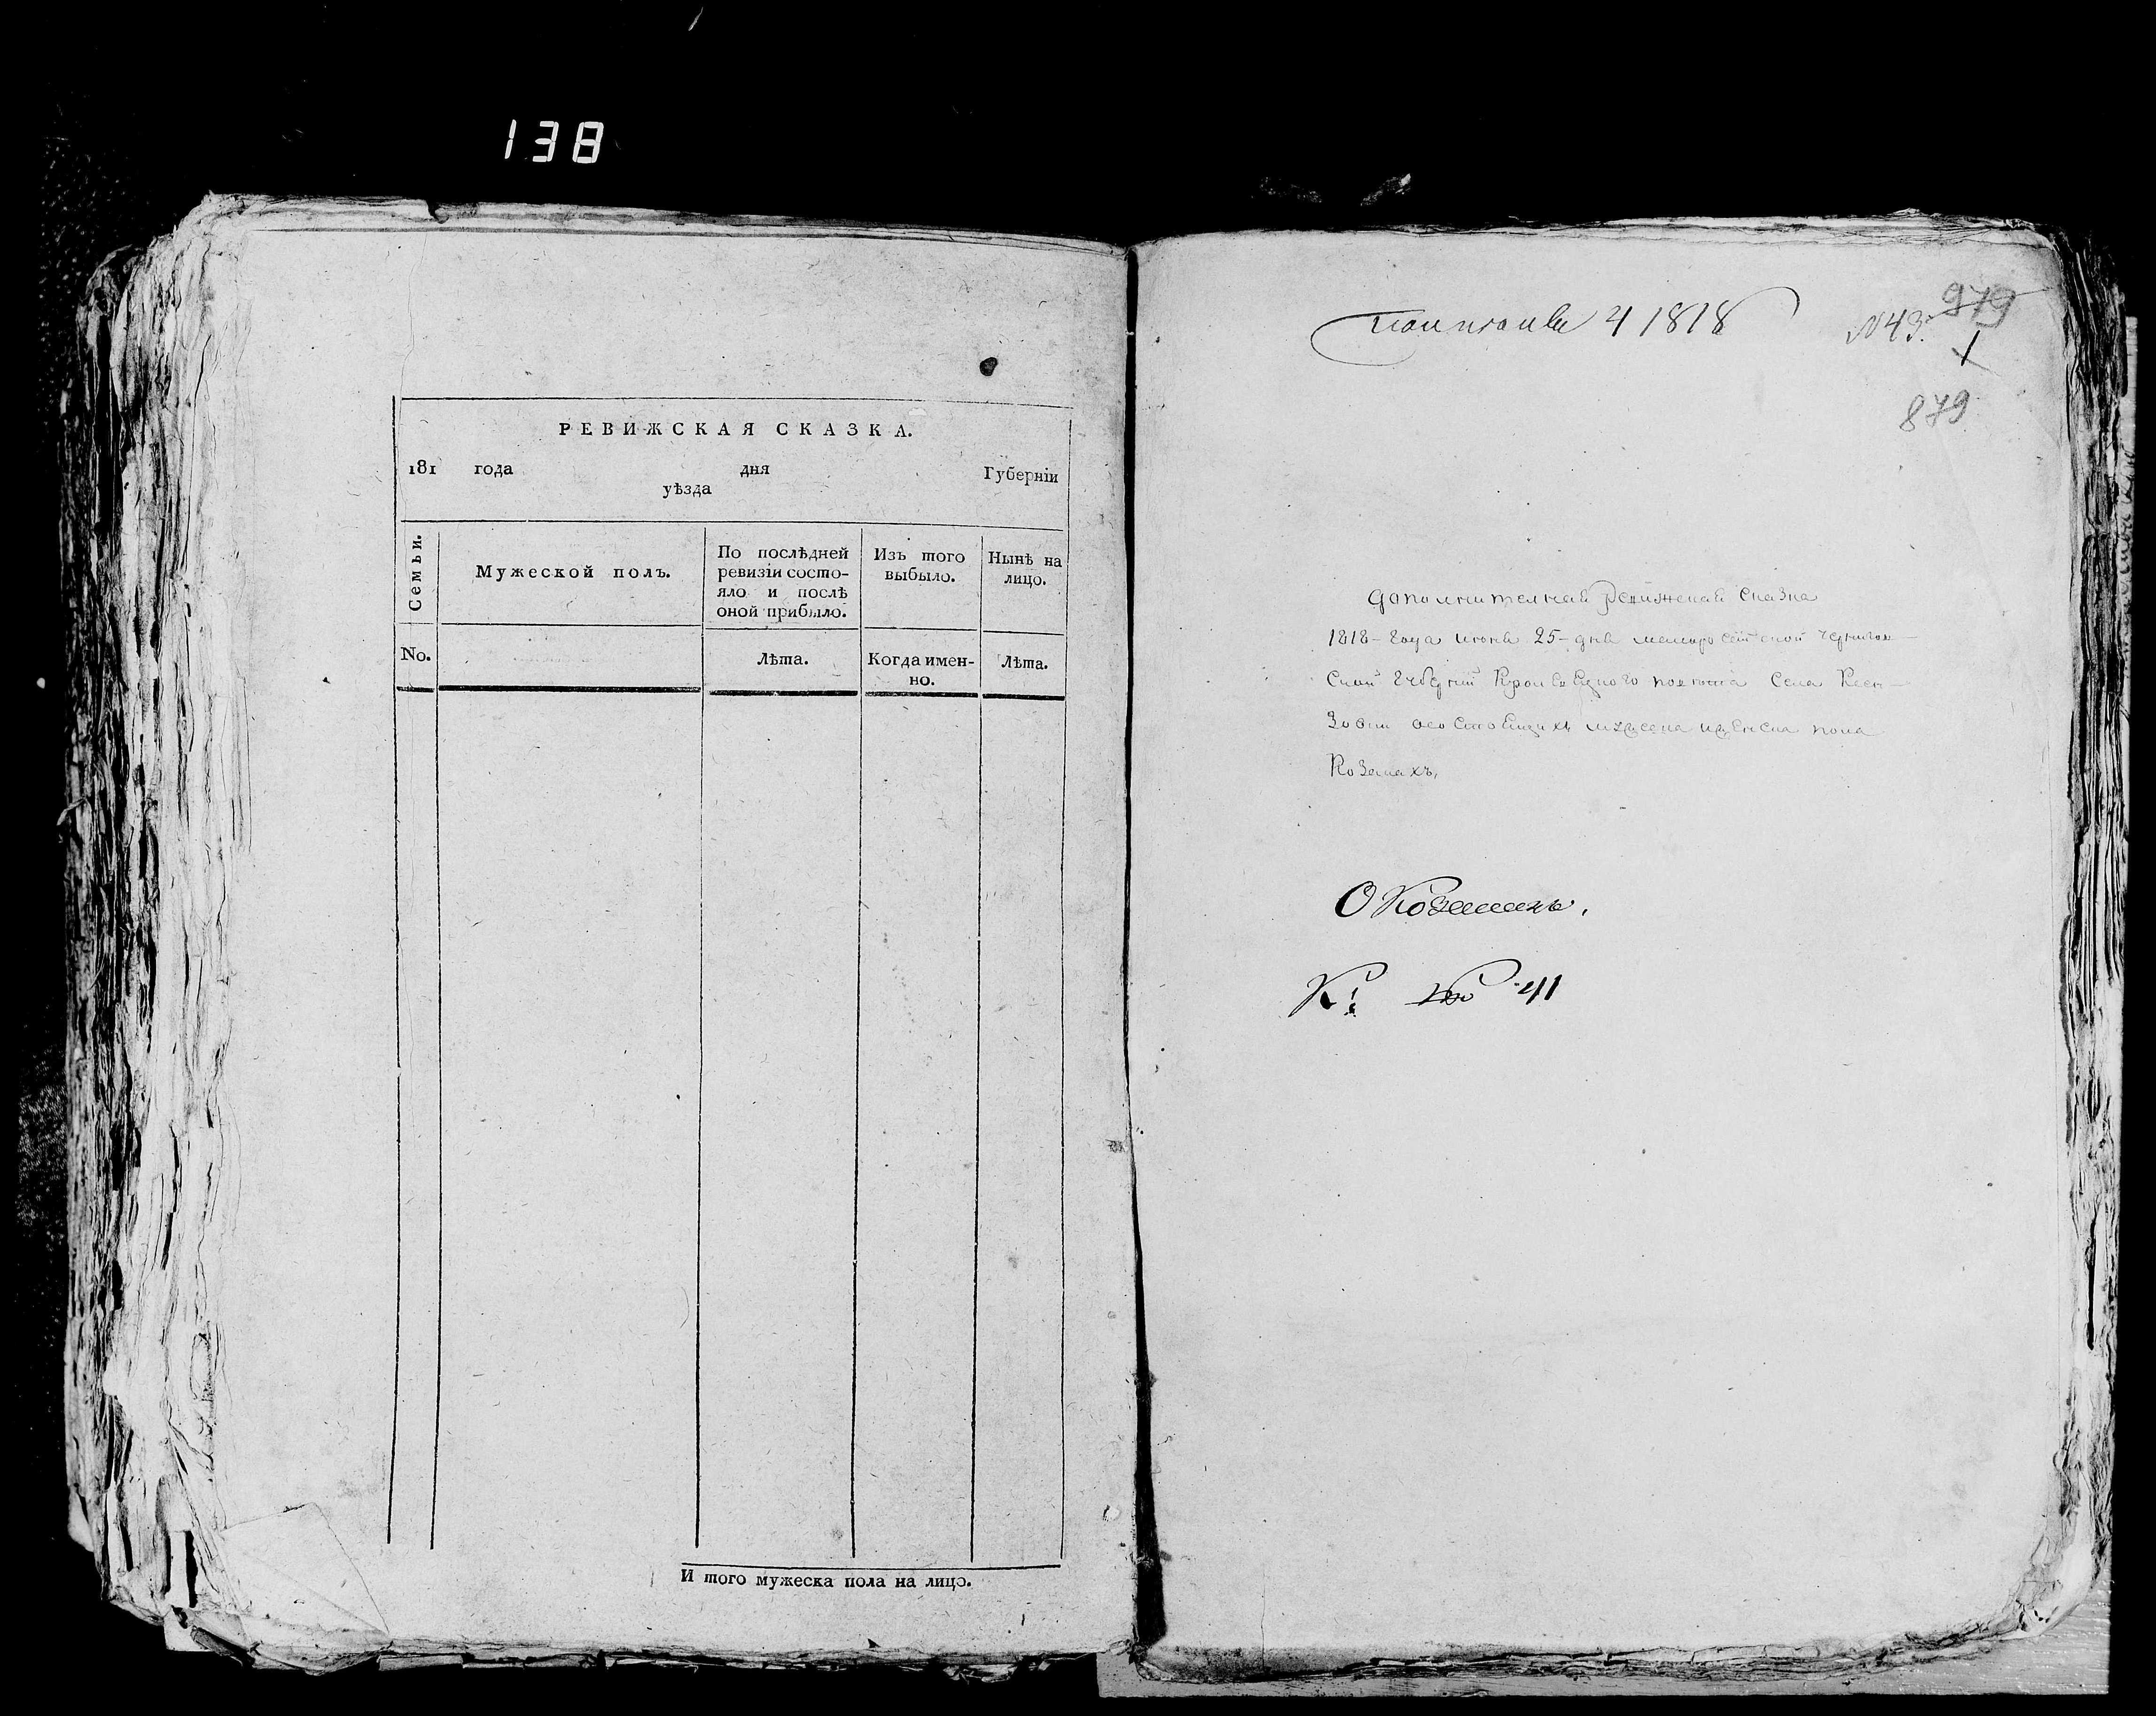 138
РЕВИЖСКАЯ СКАЗКА.
181 года дня Губерніи
уѣзда
Семьи.
Мужеской полъ.
По послѣдней ревизіи состо-
яло и послѣ оной прибыло.
Изъ того выбыло.
Нынѣ на лицо.
No.
Лѣта.
Когда имен-
но.
Лѣта.
И того мужеска пола на лицо.
4 1818
N 43.
979
1
879
Дополнителная Ревижская сказка
1818 - года июня 25 - дня малоросѣйской Чернигов-
Ской губерний Кролевецкого повета Села
мужеска и женска пола
Козакахъ,
О Козакахъ.
41